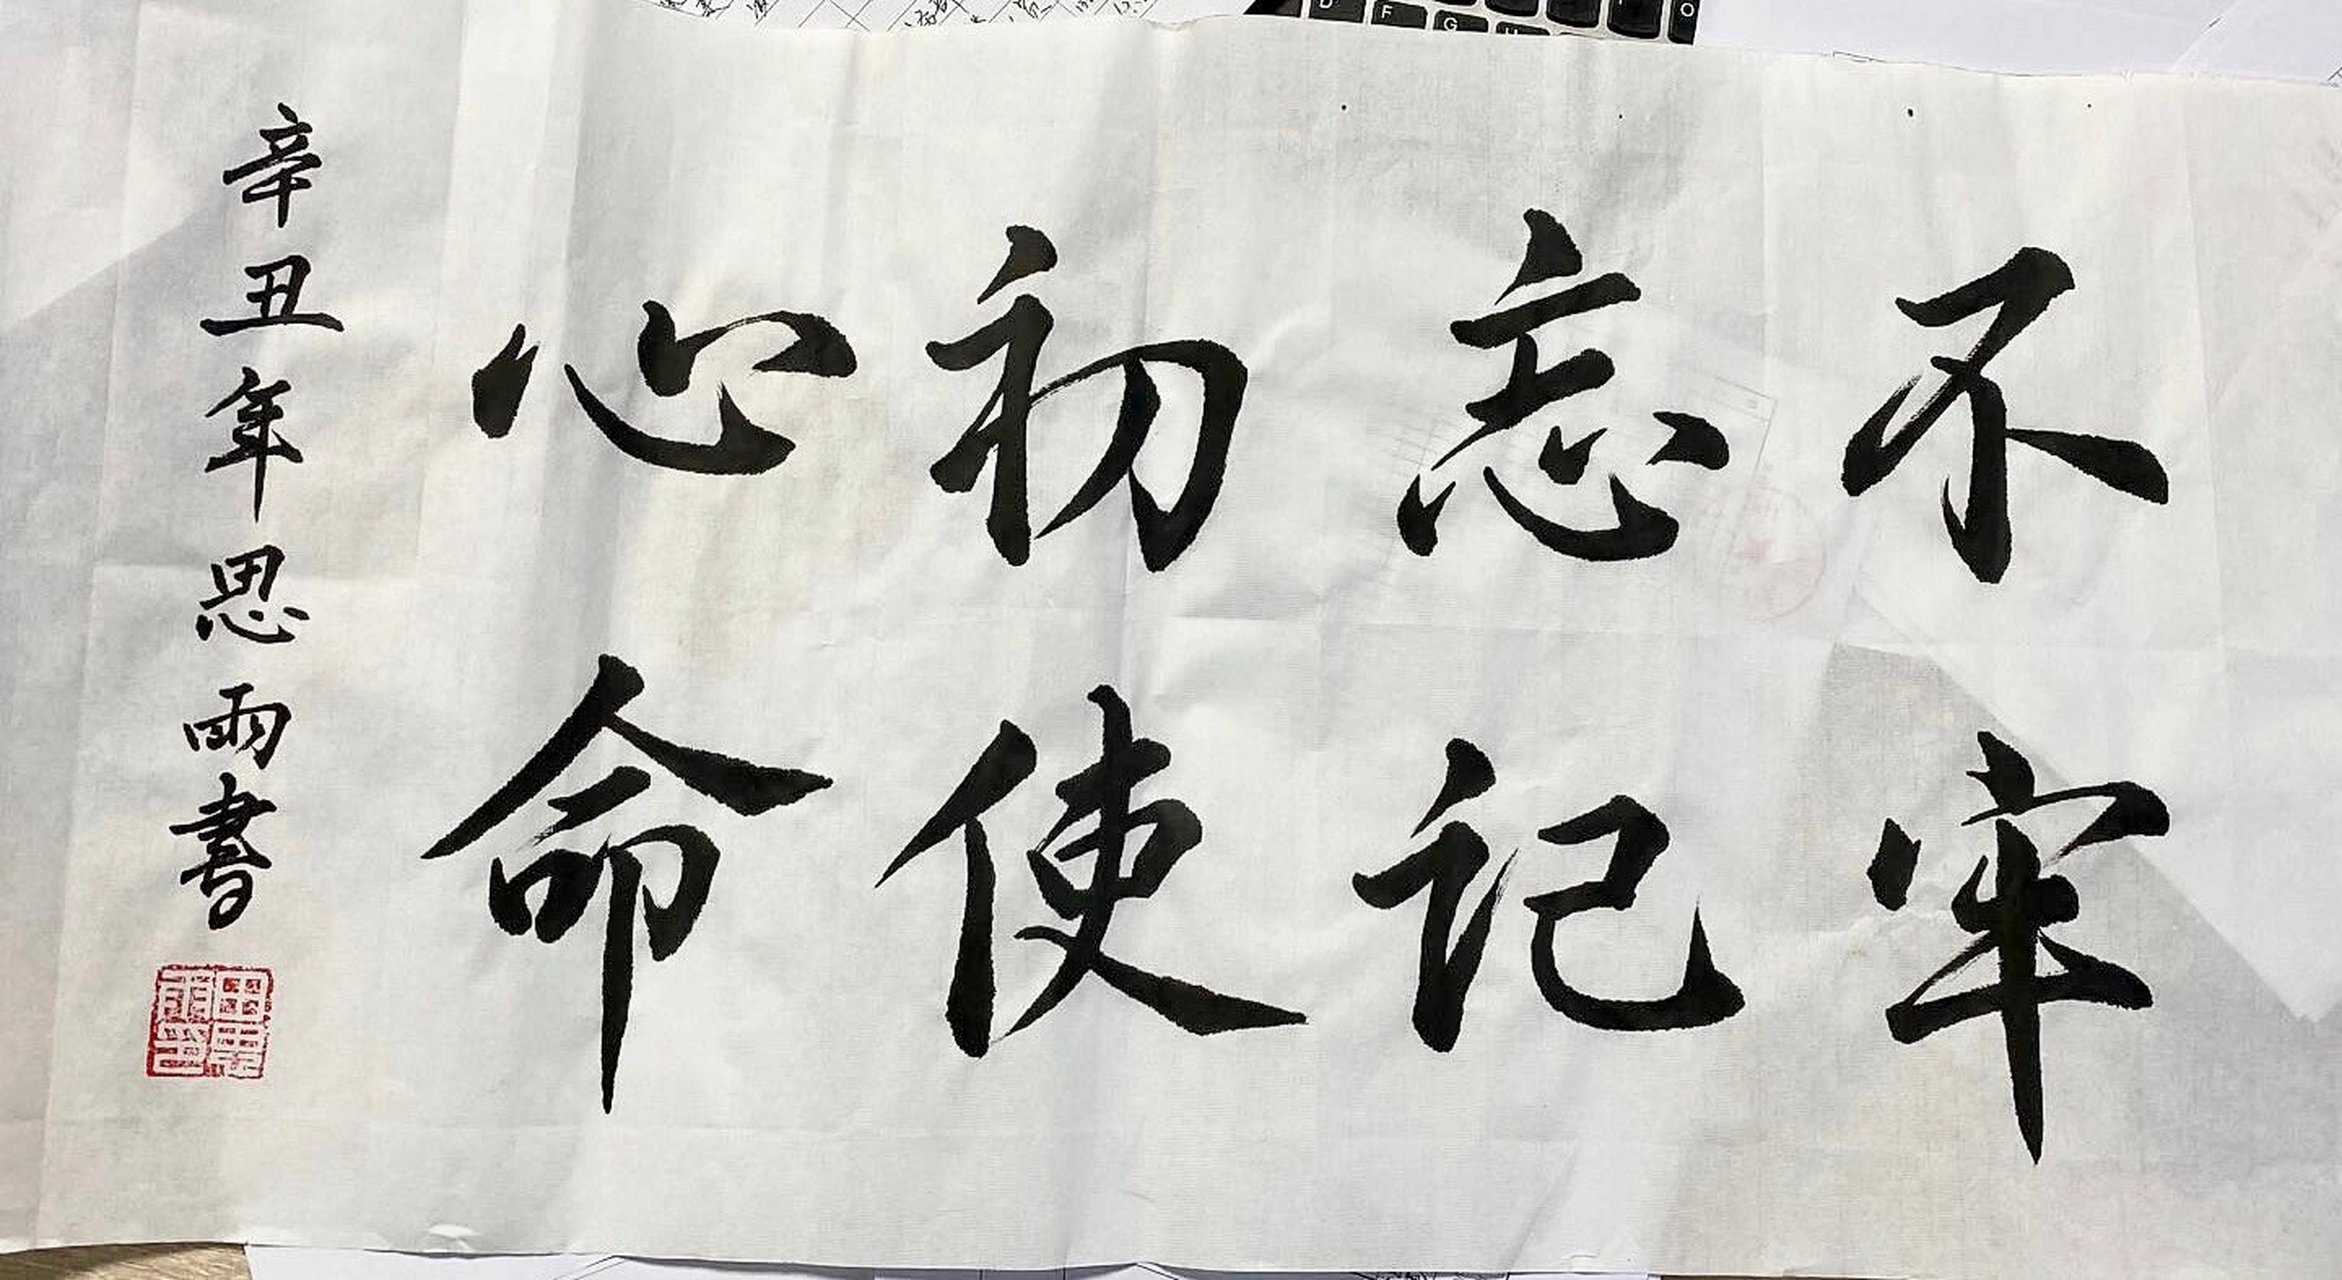 不忘初心
牢记使命
辛丑年思雨書
D F G H O